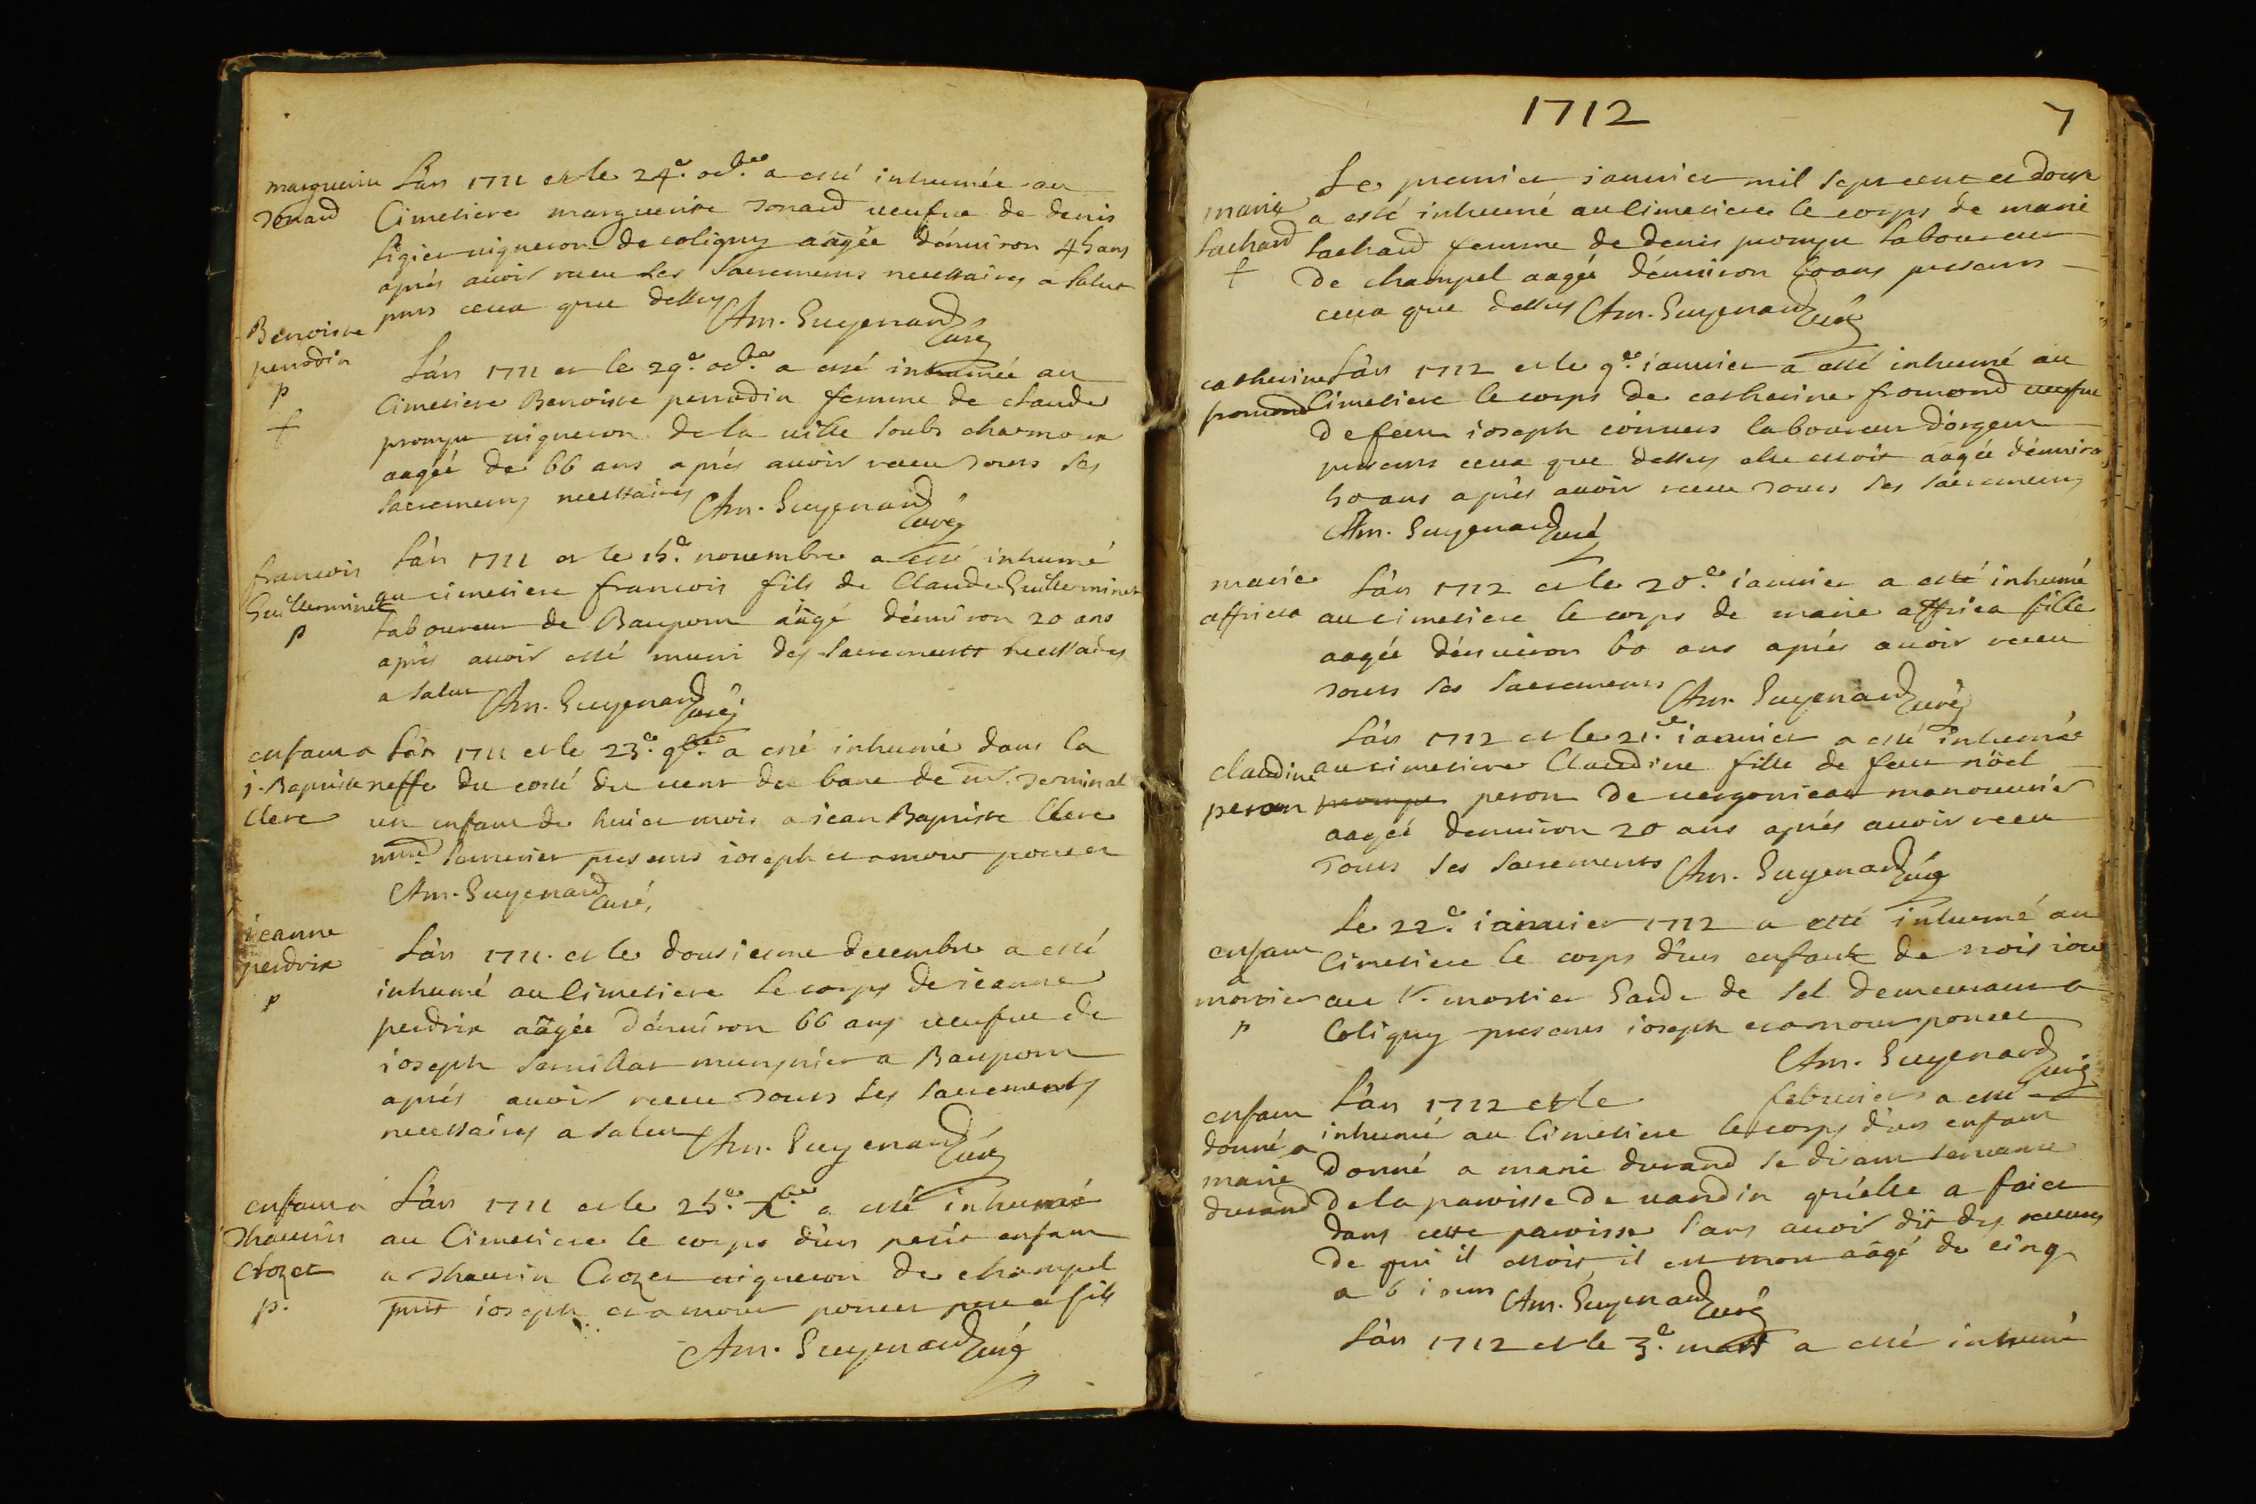 marguerite
Tonard
L'an 1711 et le 24e. octbre a esté inhumée au
Cimetiere marguerite Tonard veufve de denis
ligier vigneron de coligny aagée d'environ 45 ans
aprés avoir receu les Sacremens necessaires a Salut
pnts ceux que dessus Am. Guyenard curé
Benoiste
perrodin
p
L'an 1711 et le 29e. octbre a esté inhumée au
Cimetiere Benoiste perrodin femme de claude
prompt vigneron de la ville soubs charmoux
aagée de 66 ans aprés avoir receu tous les
sacremens necessaires Am. Guyenard curé
francois
Guilleminet
p
L'an 1711 et le 15e. novembre a esté inhumé
au cimetiere francois fils de Claude Guilleminet
laboureur de Baupont aagé d'environ 20 ans
aprés avoir esté muni des sacrements necessaires
a salut Am. Guyenard curé
enfant a
j. Baptiste
Clerc
L'an 1711 et le 23e. 9bre a esté inhumé dans la
neffe du costé du vent du banc de mr. Terminal
un enfant de huict mois a jean Baptiste Clerc
presents joseph et amour poncet
Am. Guyenard curé
jeanne
perdrix
p
L'an 1711 et le dousiesme decembre a esté
inhumé au Cimetiere le corps de jeanne
perdrix aâgée d'environ 66 ans veufve de
joseph munynier a Baupont
aprés avoir receu tous les sacrements
necessaires a salut Am. Guyenard curé
enfant a
Thaurin
Crozet
p.
L'an 1711 et le 25e. Xbre a esté inhumé
au Cimetiere le corps d'un petit enfant
a Thaurin Crozet vigneron de chazpel
pnts joseph et amour poncet pere et fils
Am. Guyenard curé
1712
7
marie
Lachard
Le premier janvier mil sept cent et douze
a esté inhumé au Cimetiere le corps de marie
Lachard femme de denis prompt laboureur
de chazpel aagée d'environ 60 ans presents
ceux que dessus Am. Guyenard curé
catherine
fromond
L'an 1712 et le 9e. janvier a esté inhumé au
Cimetiere le corps de catherine fromond veufve
de feu joseph laboureur d'orgent
presents ceux que dessus elle estoit aagée d'enviro
50 ans aprés avoir receu tous les sacremens
Am. Guyenard curé
marie
affriea
L'an 1712 et le 20e. janvier a esté inhumé
au cimetiere le corps de marie affriea fille
aagée d'environ 60 ans aprés avoir receu
tous les sacremens Am. Guyenard curé
claudine
peron
L'an 1712 et le 21e. janvier a esté inhumée
au cimetiere Claudine fille de feu nöel
prompt peron de vergonieat manouvrier
aagée d'environ 20 ans aprés avoir receu
tous les sacrements Am. Guyenard curé
enfant
a
mortier
p
Le 22e. janvier 1712 a esté inhumé au
Cimetiere le corps d'un enfant de trois jour
au Sr. mortier Garde de sel demeurant a
Coligny presents joseph et amour poncet
Am. Guyenard curé
enfant
donné a
marie
durand
L'an 1712 et le febvrier a esté
inhumé au Cimetiere le corps d'un enfant
donné a marie durand se disant servante
de la parroisse de vandin qu'elle a faict
dans cette parroisse sans avoir dit des
de qui il estoit, il est mort aâgé de cinq
a 6 jours Am. Guyenard curé
L'an 1712 et le 3e. mars a esté inhumé